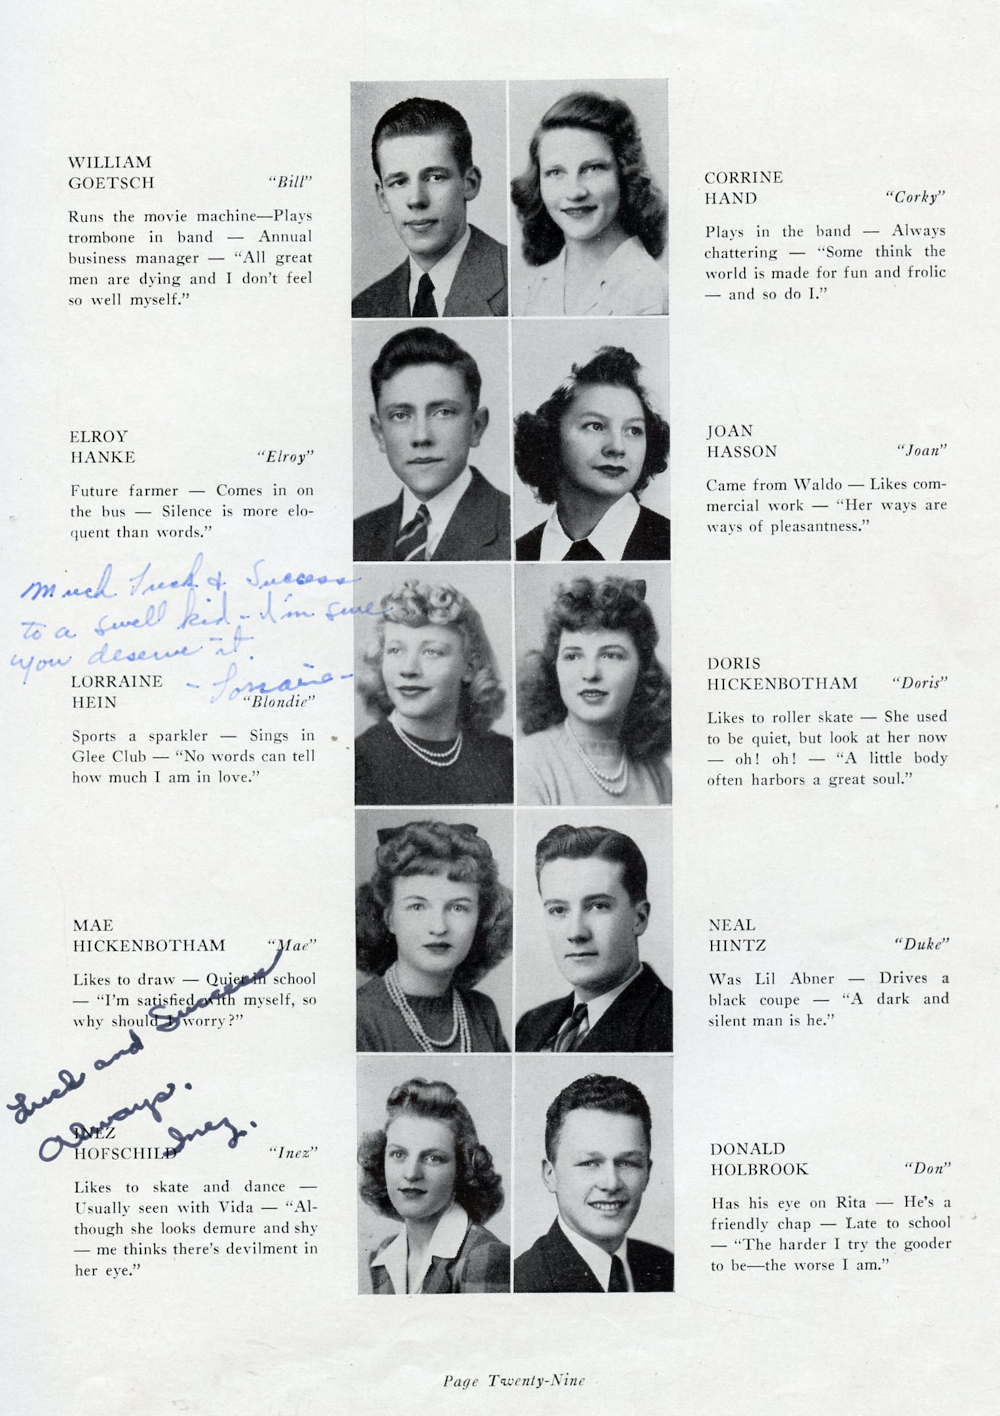 WILLIAM
GOETSCH "Bill"
Runs the movie machine—Plays
trombone in band — Annual
business manager — "All great
men are dying and I don't feel
so well myself."
CORRINE
HAND "Corky"
Plays in the band — Always
chattering — "Some think the
world is made for fun and frolic
— and so do I."
ELROY
HANKE "Elroy"
Future farmer — Comes in on
the bus — Silence is more elo-
quent than words."
JOAN
HASSON "Joan"
Came from Waldo — Likes com-
mercial work — "Her ways are
ways of pleasantness."
Much Luck & Success
to a swell kid - I'm sure
you deserve it.
- Lorraine -
LORRAINE
HEIN "Blondie"
Sports a sparkler — Sings in
Glee Club — "No words can tell
how much I am in love."
DORIS
HICKENBOTHAM "Doris"
Likes to roller skate — She used
to be quiet, but look at her now
— oh! oh! — "A little body
often harbors a great soul."
MAE
HICKENBOTHAM "Mae"
Likes to draw — Quiet in school
— "I'm satisfied with myself, so
why should I worry?"
NEAL
HINTZ "Duke"
Was Lil Abner — Drives a
black coupe — "A dark and
silent man is he."
Luck and Success
Always.
Inez.
INEZ
HOFSCHILD "Inez"
Likes to skate and dance —
Usually seen with Vida — "Al-
though she looks demure and shy
— me thinks there's devilment in
her eye."
DONALD
HOLBROOK "Don"
Has his eye on Rita — He's a
friendly chap — Late to school
— "The harder I try the gooder
to be—the worse I am."
Page Twenty-Nine